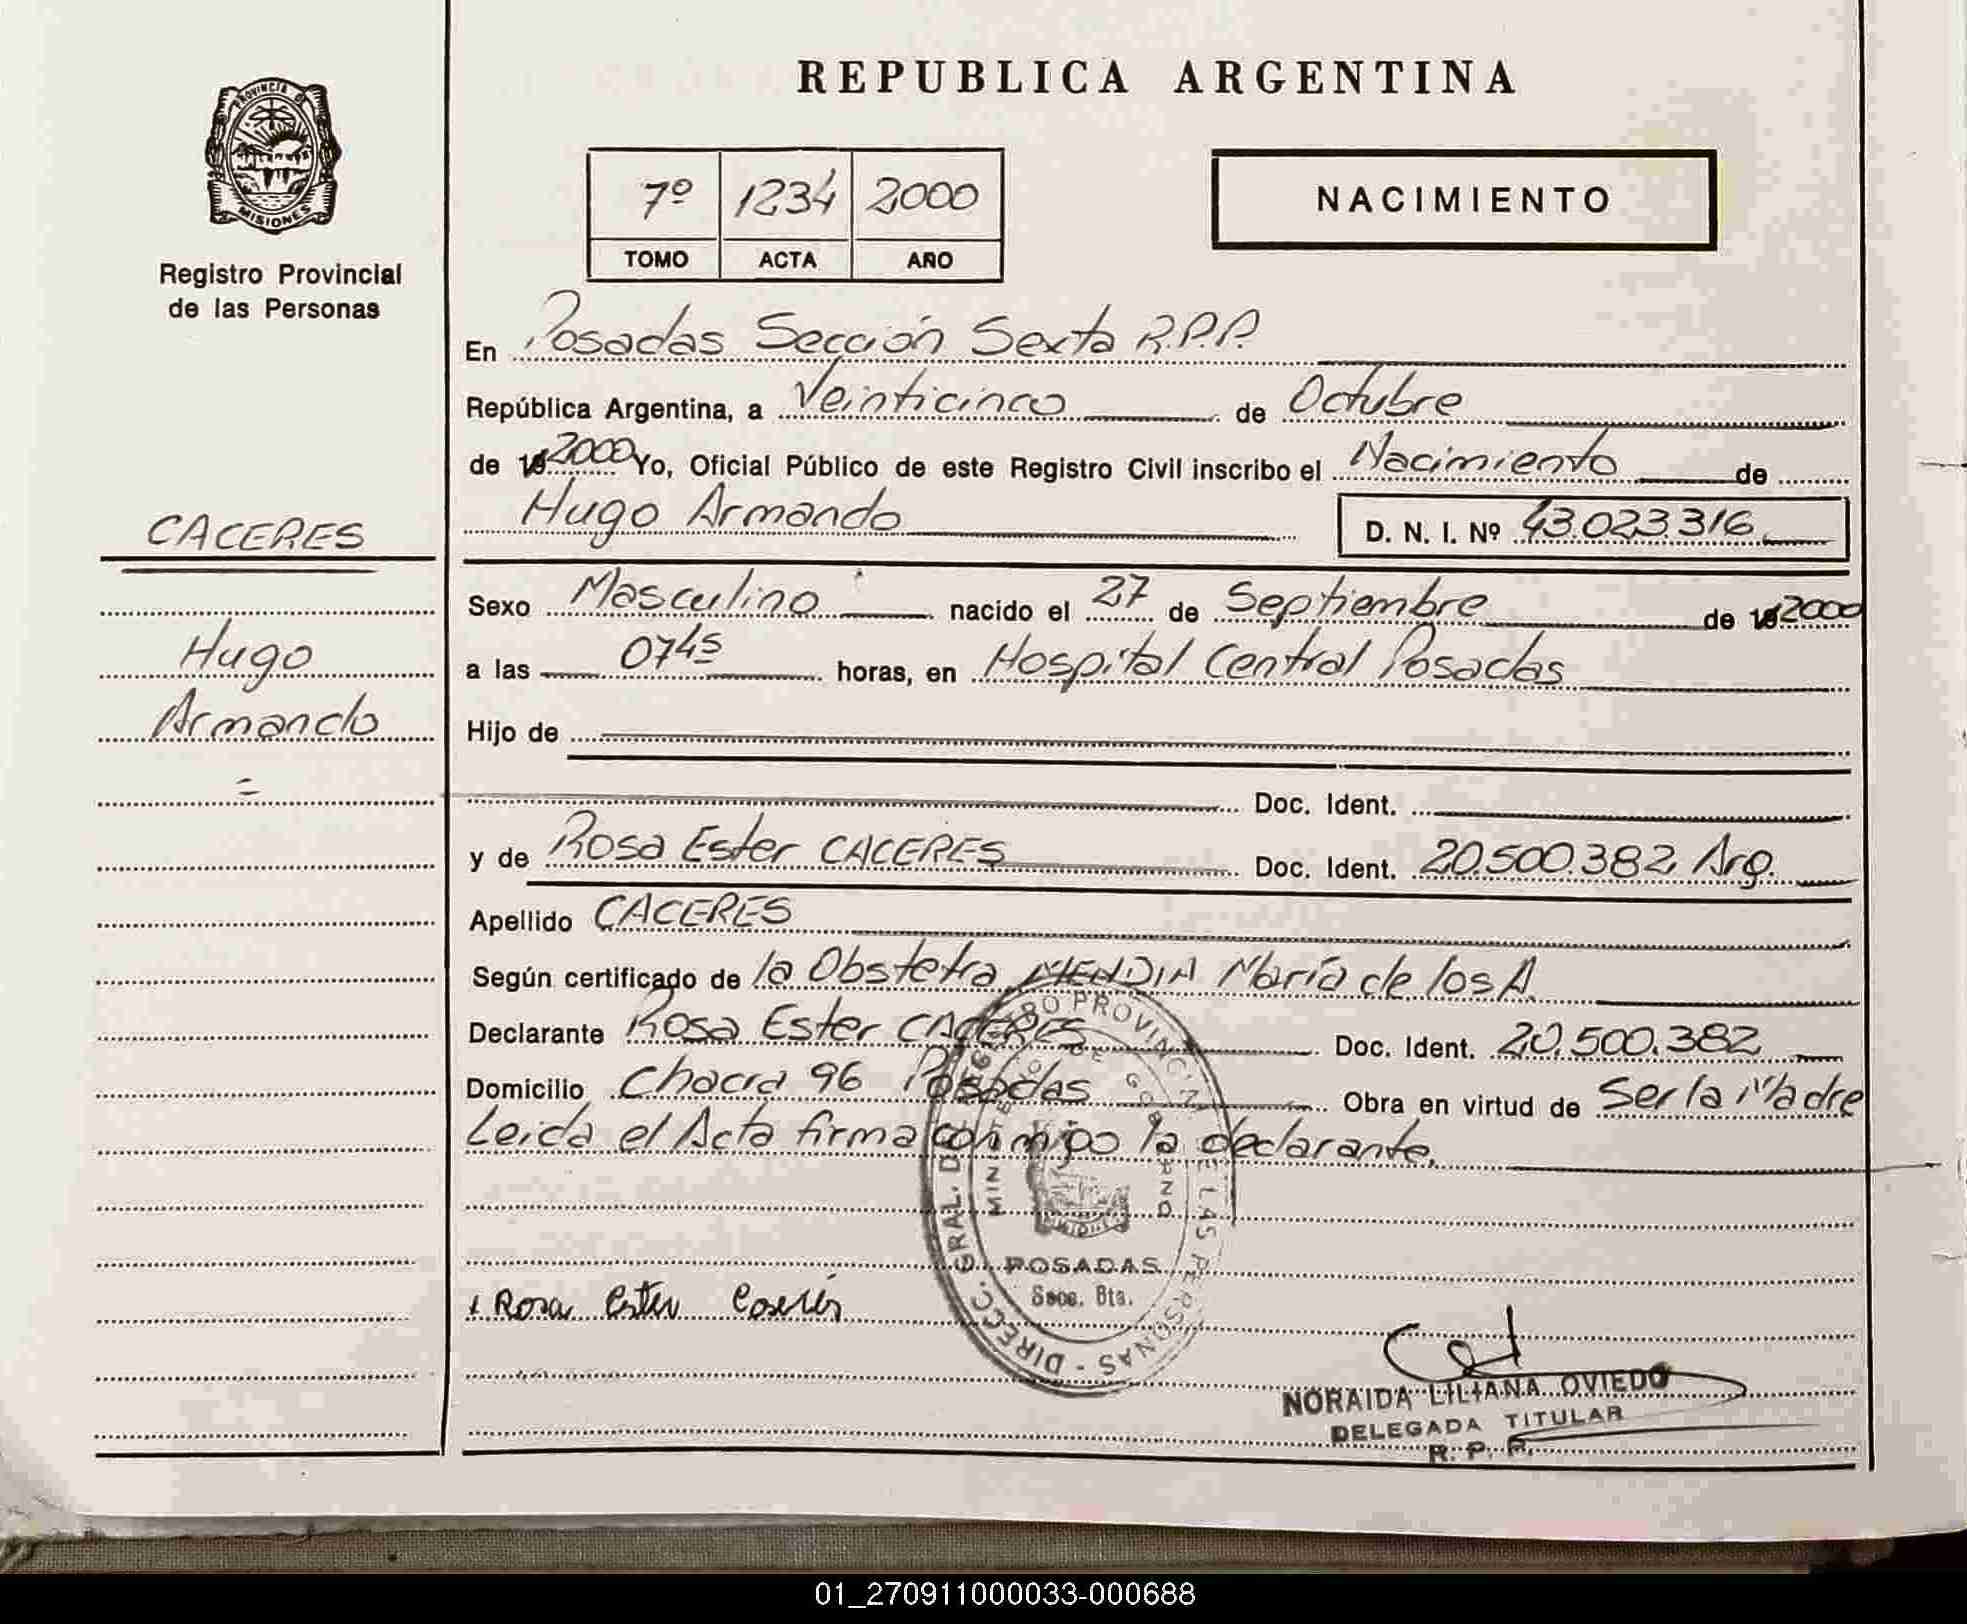 REPUBLICA ARGENTINA
PROVINCIA DE
MISIONES
Registro Provincial
de las Personas
7º 1234 2000
TOMO ACTA AÑO
NACIMIENTO
En Posadas Sección Sexta R.P.P.
República Argentina, a Veinticinco de Octubre
de 19 2000 Yo, Oficial Público de este Registro Civil inscribo el Nacimiento de
Hugo Armando D. N. I. Nº 43.023.316
CACERES
Hugo
Armando
Sexo Masculino nacido el 27 de Septiembre de 19 2000
a las 0745 horas, en Hospital Central Posadas
Hijo de
Doc. Ident.
y de Rosa Ester CACERES Doc. Ident. 20.500.382 Arg.
Apellido CACERES
Según certificado de la Obstetra MENDIA María de los A.
Declarante Rosa Ester CACERES Doc. Ident. 20.500.382
Domicilio Chacra 96 Posadas Obra en virtud de Ser la Madre
Leida el Acta firma conmigo la declarante.
DIRECC. GRAL. DEL REGISTRO PROVINCIAL DE LAS PERSONAS
MINISTERIO DE GOBIERNO
POSADAS
Secc. 6ta.
Rosa Ester Caserés
NORAIDA LILIANA OVIEDO
DELEGADA TITULAR
R. P. P.
01_270911000033-000688